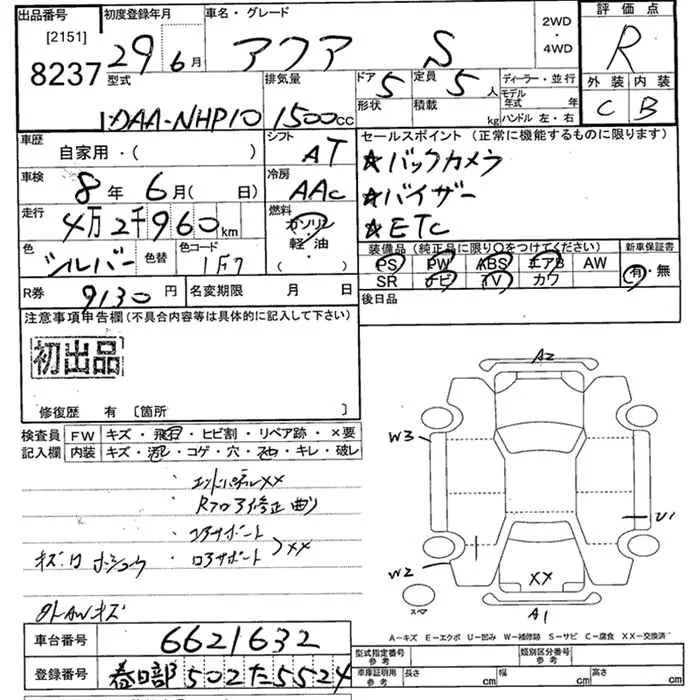 出品番号 [2151] 8237
初度登録年月 29年6月
車名・グレード アクア S
2WD・4WD
評価点 R
外装 C 内装 B
型式 DAA-NHP10
排気量 1500cc
ドア 5 定員 5人
形状 積載 kg
ディーラー・並行
モデル年式 年
ハンドル 左・右
車歴 自家用・( )
シフト AT
車検 8年6月( 日)
冷房 AAC
走行 4万2千960km
燃料 ガソリン・軽油 ( ・ )
色 シルバー 色替 色コード 1F7
セールスポイント (正常に機能するものに限ります)
★バックカメラ
★バイザー
★ETC
装備品 (純正品に限り○をつけてください) 新車保証書
PS PW ABS エアB AW 有・無
SR ナビ TV カワ
R券 9130円 名変期限 月 日
後日品
注意事項申告欄(不具合内容等は具体的に記入して下さい)
初出品
修復歴 有 [箇所 ]
検査員 FW キズ・飛石・ヒビ割・リペア跡・×要
記入欄 内装 キズ・汚レ・コゲ・穴・シミ・キレ・破レ
・エンドパネルXX
Rフロア修正 曲り
・コアサポート
・ロアサポート >XX
外AWキズ
A2
W3
U1
W2
XX
スペア
A1
A-キズ E-エクボ U-凹み W-補修跡 S-サビ C-腐食 XX-交換済
車台番号 6621632
登録番号 春日部 502 た 5524
型式指定番号 参考 類別区分番号 参考
車庫証明用 参考 長さ cm 幅 cm 高さ cm